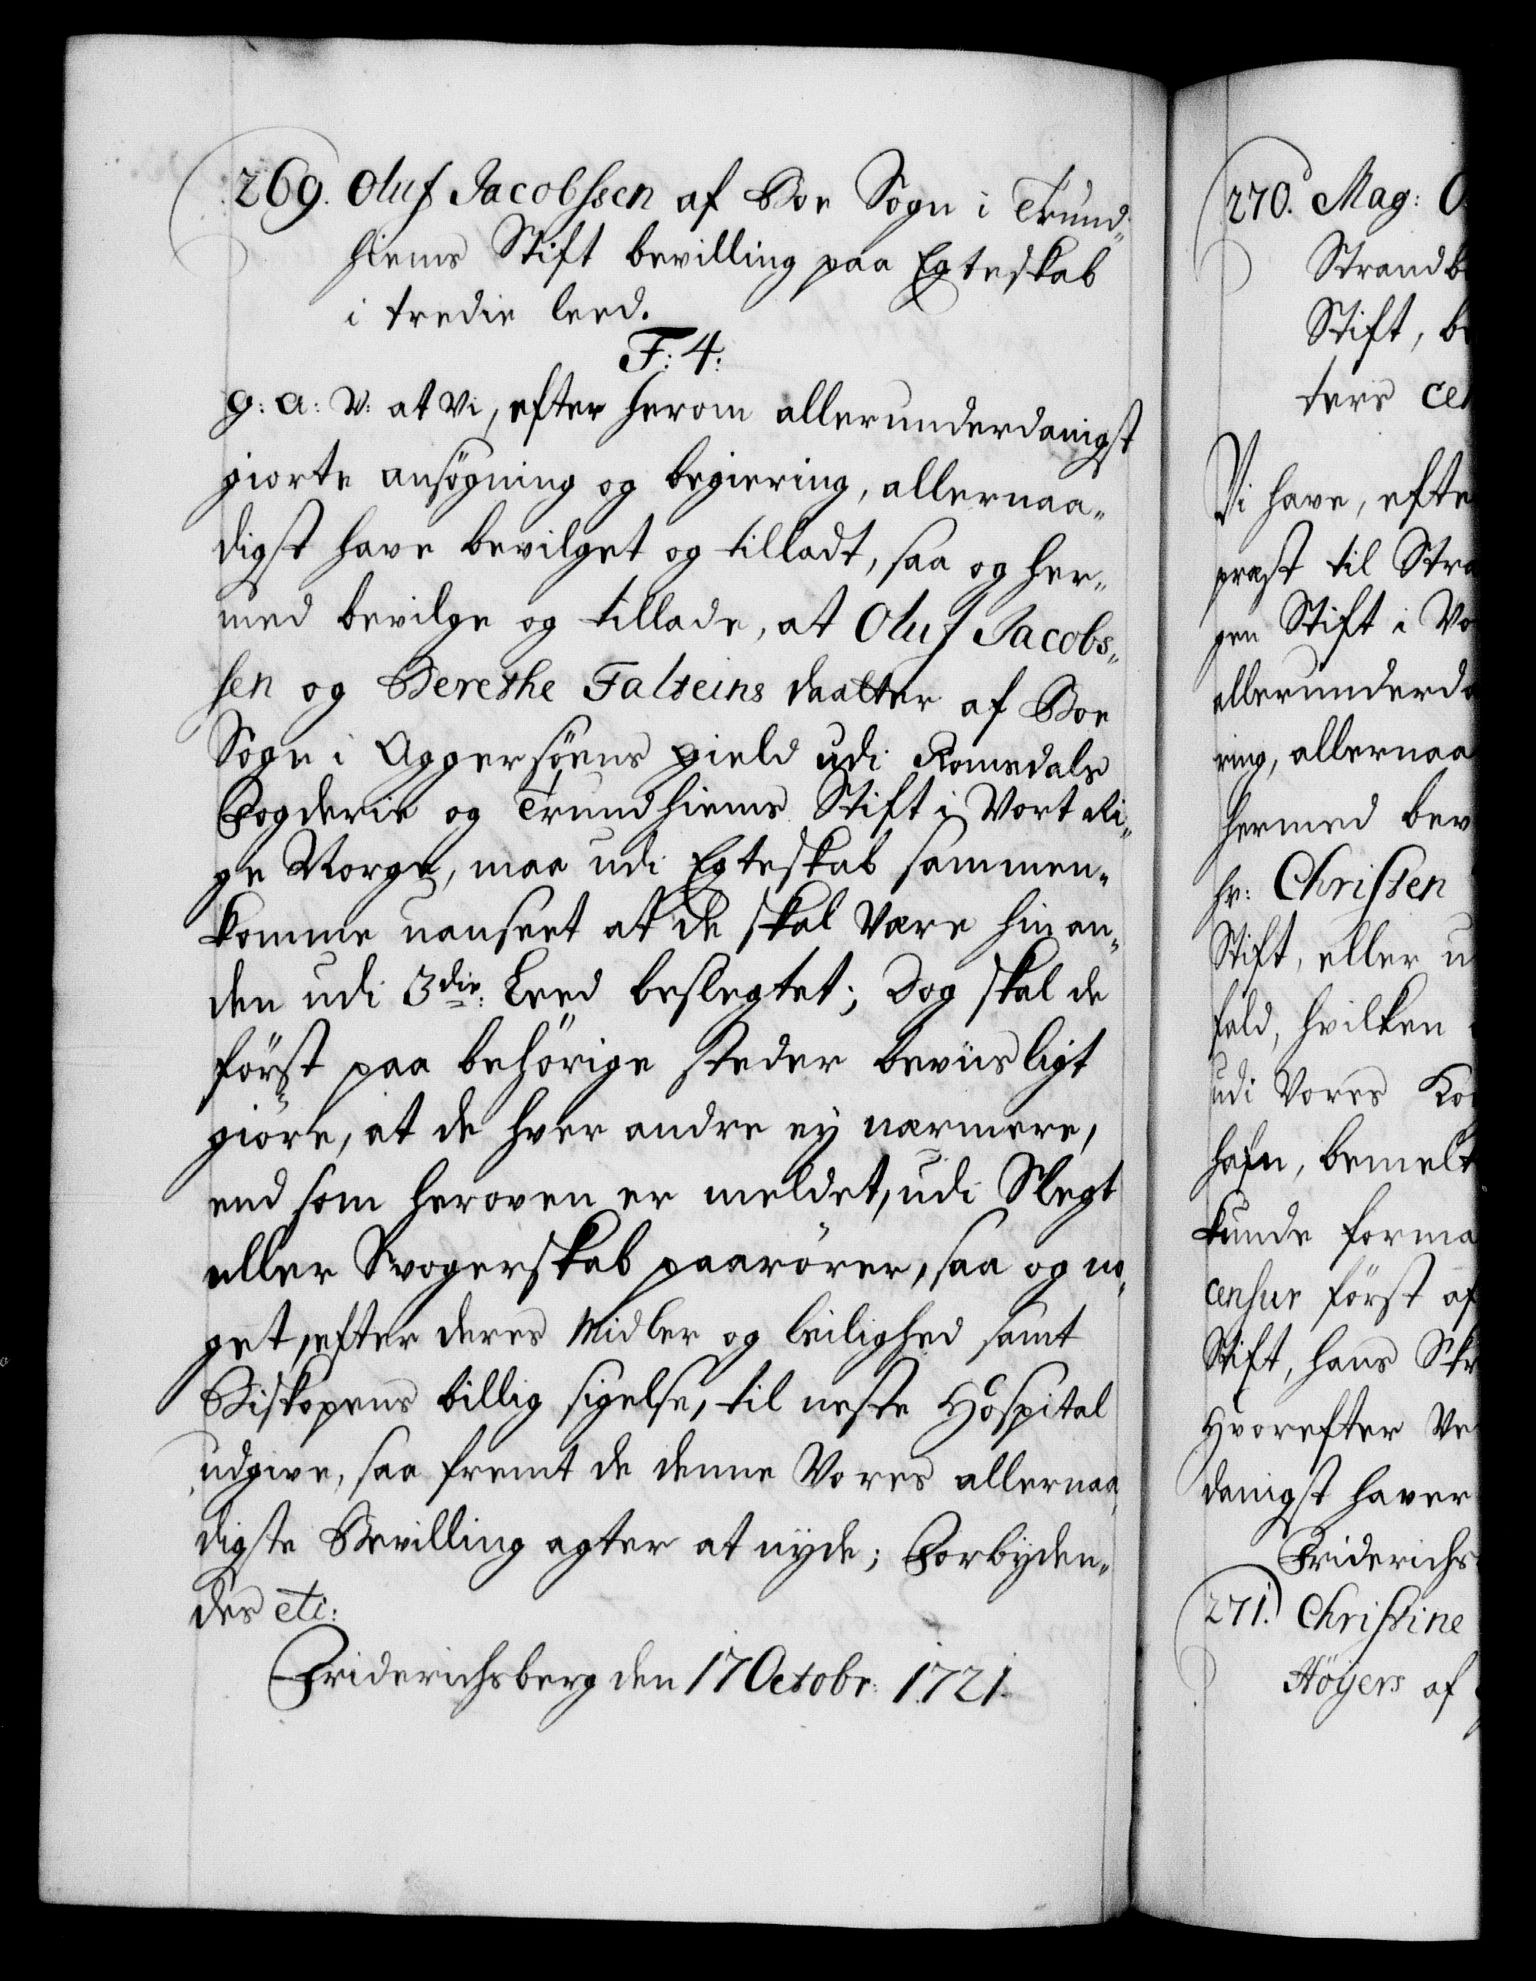 269. Oluf Jacobssen af Boe Sogn i Trund„
hiems Stift bevilling paa Egteskab
i tredie leed.
F: 4:
g: a: V: at Vi, efter herom allerunderdanigst
giorte ansøgning og begiering, allernaa„
digst have bevilget og tilladt, saa og her„
med bevilge og tillade, at Oluf Jacobs„
sen og Berethe Falseins daatter af Boe
Sogn i Aggersøens gield udi Romsdals
Fogderie og Trundhiems Stift i Vort Ri„
ge Norge, maa udi Egteskab sammen„
komme uanseet at de skal være hinan„
den udi 3die: Leed beslegtet; Dog skal de
først paa behørige steder beviisligt
giøre, at de hver andre ey nærmere,
end som heroven er meldet, udi Slegt
eller Svogerskab paarører, saa og no„
get, efter deres Midler og leilighed samt
Biskopens billig sigelse, til neste Hospital
udgive, saa fremt de denne Vores allernaa„
digste Bevilling agter at nyde; Forbyden„
des etc:
Friderichsberg den 17 Octobr: 1721.
270. Mag: O
Strandb
Stift, be
ters cen
Vi have, efte
præst til Stra
gen Stift i Vo
allerunderda
ring, allernaa
hermed bev
hr: Chrissen
Stift, eller u
feld, hvilken
udi Vores Ko
hafn, bemelt
kunde forma
censur først af
Stift, hans Skr
Hvorefter Ve
danigst haver
Friderichs
271. Christine
Høyers af